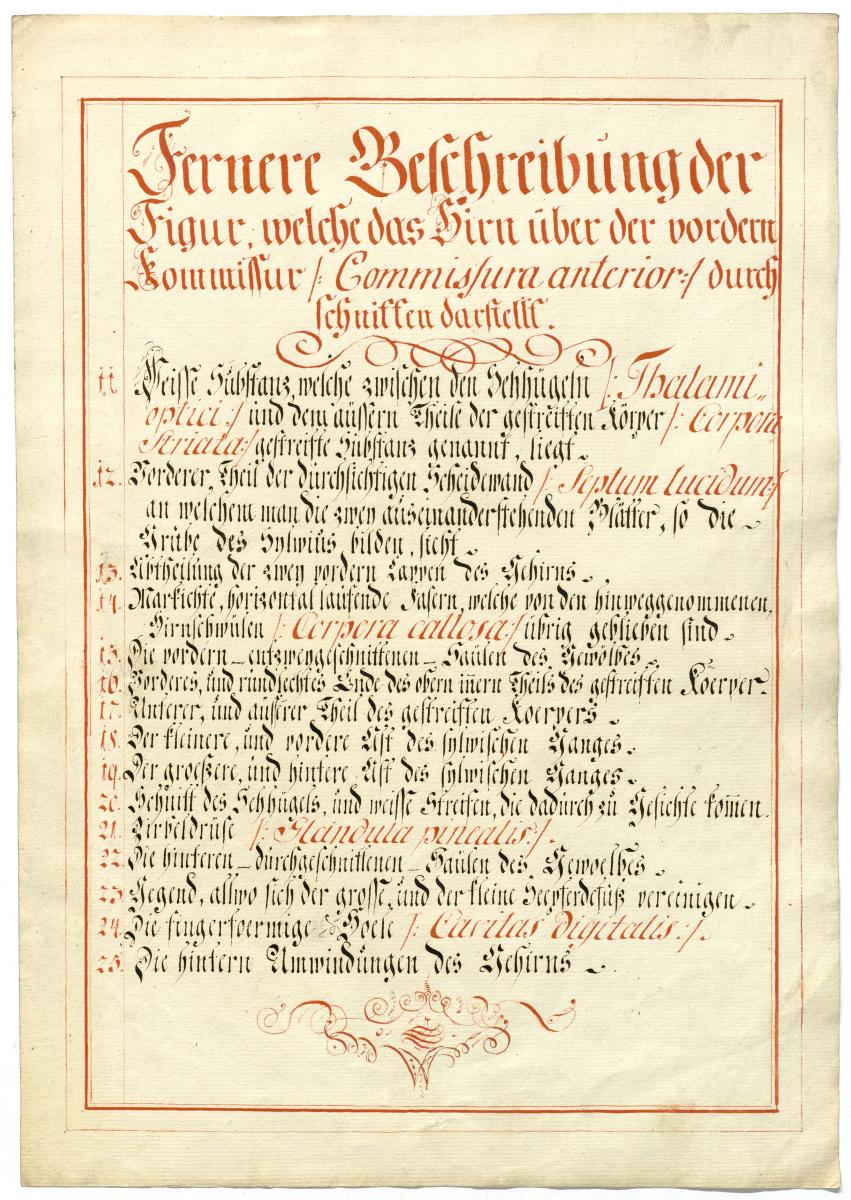 Fernere Beschreibung der
Figur, welche das Hirn über der vordern
Kommissur /: Commissura anterior :/ durch
schnitten darstellt.
11. Weisse Substanz, welche zwischen den Sehhügeln /: Thalami„
optici :/ und dem äussern Theile der gestreiften Körper /: Corpora
Striata :/ gestreifte Substanz genannt, liegt.
12. Vorderer Theil der durchsichtigen Scheidewand /: Septum lucidum :/
an welchem man die zwey auseinanderstehenden Blätter, so die
Grube des Sylwius bilden, sieht.
13. Abtheilung der zwey vordern Lappen des Gehirns.
14. Markichte, horizontal laufende Fasern, welche von den hinweggenommenen,
Hirnschwülen /: Corpora callosa :/ übrig geblieben sind.
15. Die vordern – entzweygeschnittenen – Säulen des Gewölbes.
16. Vorderes, und rundlechtes Ende des obern innern Theils des gestreiften Koerper.
17. Unterer, und äusserer Theil des gestreiften Koerpers.
18. Der kleinere, und vordere Ast des sylwischen Ganges.
19. Der groeßere, und hintere Ast des sylwischen Ganges.
20. Schnitt des Sehhügels, und weisse Streifen, die dadurch zu Gesichte kom̄en.
21. Zirbeldrüse /: Glandula pinealis :/.
22. Die hinteren – durchgeschnittenen – Säulen des Gewoelbes.
23. Gegend, allwo sich der grosse, und der kleine Seepferdefuß vereinigen.
24. Die fingerfoermige Hoele /: Cavitas digitalis :/.
25. Die hintern Umwindungen des Gehirns.